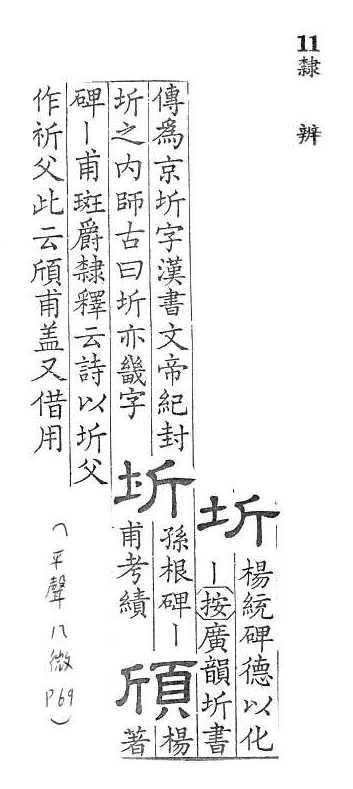 11 隸辨
圻
楊統碑德以化
丨按廣韻圻書
傳爲京圻字漢書文帝紀封
圻之内師古曰圻亦畿字
圻
孫根碑丨
甫考績
頎
楊
著
碑丨甫斑爵隸釋云詩以圻父
作祈父此云頎甫盖又借用
(平聲八微 P69)